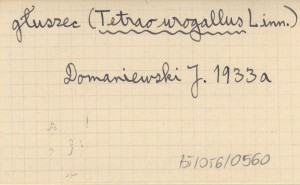 głuszec (Tetrao urogallus Linn.)
Domaniewski J. 1933a